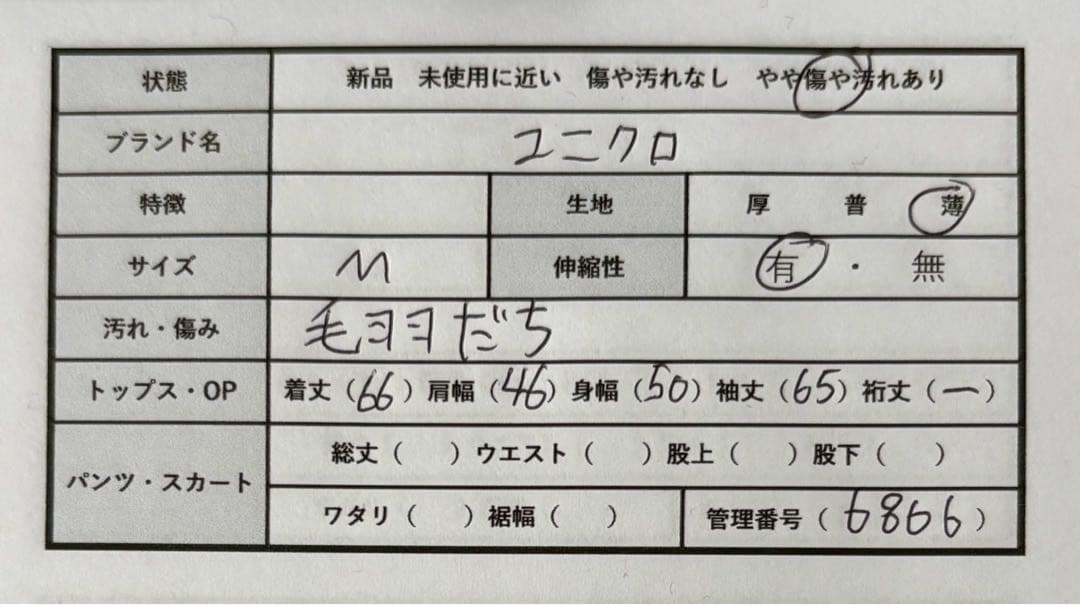 状態 新品 未使用に近い 傷や汚れなし やや傷や汚れあり
ブランド名 ユニクロ
特徴 生地 厚 普 薄
サイズ M 伸縮性 有・無
汚れ・傷み 毛ヨヨだち
トップス・OP 着丈（66）肩幅（46）身幅（50）袖丈（65）裄丈（ー）
パンツ・スカート 総丈（ ）ウエスト（ ）股上（ ）股下（ ）
ワタリ（ ）裾幅（ ） 管理番号（6866）